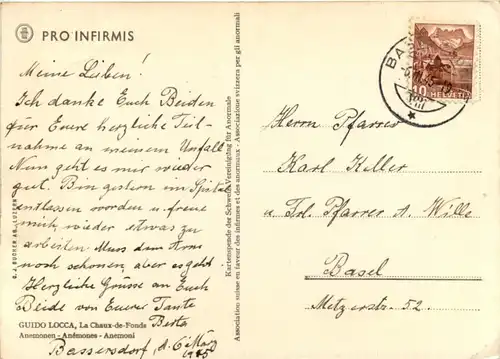 PRO INFIRMIS
Meine Lieben!
Ich danke Euch Beiden
für Eure herzliche Teil-
nahme an meinem Unfall
Nun geht es mir wieder
gut. Bin gestern im Spital
entlassen worden u freue
mich, wieder etwas zu
arbeiten. Muss dem Arm
noch schonen, aber es geht.
Herzliche Grüsse an Euch
Beide von Eurer Tante
Berta
GUIDO LOCCA, La Chaux-de-Fonds
Anemonen - Anémones - Anemoni
Bassersdorf, d. 6 März
1945
Kartenspende der Schweiz. Vereinigung für Anormale
Association suisse en faveur des infirmes et des anormaux - Associazione svizzera per gli anormali
10
HELVETIA
Herrn Pfarrer
Karl Keller
u Frl. Pfarrer A. Wille
Basel
Metzerstr. 52.